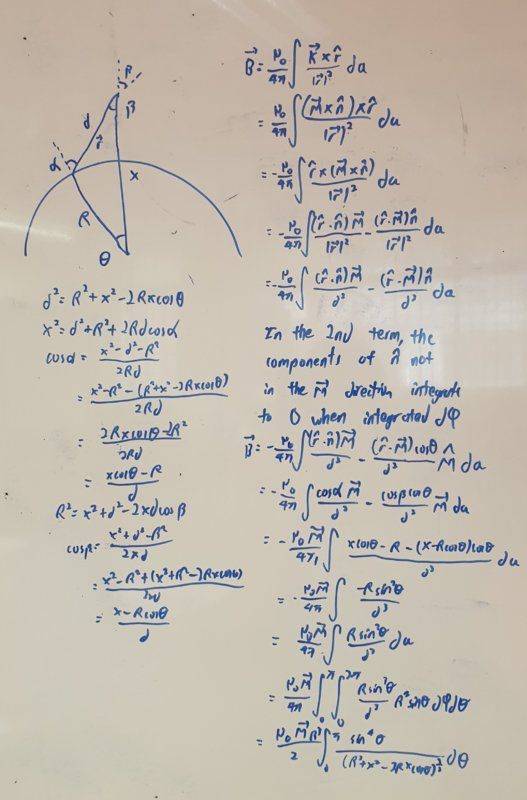 β
β
d
r⃗
α
x
R
θ
d² = R² + x² - 2Rxcosθ
x² = d² + R² + 2Rdcosα
cosα = (x² - d² - R²)/(2Rd)
= (x² - R² - (R² + x² - 2Rxcosθ))/(2Rd)
= (2Rxcosθ - 2R²)/(2Rd)
= (xcosθ - R)/d
R² = x² + d² - 2xdcosβ
cosβ = (x² + d² - R²)/(2xd)
= (x² - R² + (x² + R² - 2Rxcosθ))/(2xd)
= (x - Rcosθ)/d
B⃗ = μ₀/4π ∫ (K⃗ × r̂)/|r⃗|² da
= μ₀/4π ∫ ((M⃗ × n̂) × r̂)/|r⃗|² da
= -μ₀/4π ∫ (r̂ × (M⃗ × n̂))/|r⃗|² da
= -μ₀/4π ∫ ((r̂·n̂)M⃗)/|r⃗|² - ((r̂·M⃗)n̂)/|r⃗|² da
= -μ₀/4π ∫ ((r̂·n̂)M⃗)/d² - ((r̂·M⃗)n̂)/d² da
In the 2nd term, the
components of n̂ not
in the M⃗ direction integrate
to 0 when integrated dφ
B⃗ = -μ₀/4π ∫ ((r̂·n̂)M⃗)/d² - ((r̂·M⃗)cosθ)/d² M̂ da
= -μ₀/4π ∫ (cosα M⃗)/d² - (cosβcosθ)/d² M⃗ da
= -μ₀M⃗/4π ∫ (xcosθ - R - (x - Rcosθ)cosθ)/d³ da
= -μ₀M⃗/4π ∫ (-Rsin²θ)/d³
= μ₀M⃗/4π ∫ (Rsin²θ)/d³ da
= μ₀M⃗/4π ∫₀^π ∫₀^2π (Rsin²θ)/d³ R²sinθ dφdθ
= μ₀M⃗R³/2 ∫₀^π sin⁴θ/(R² + x² - 2Rxcosθ)^(3/2) dθ